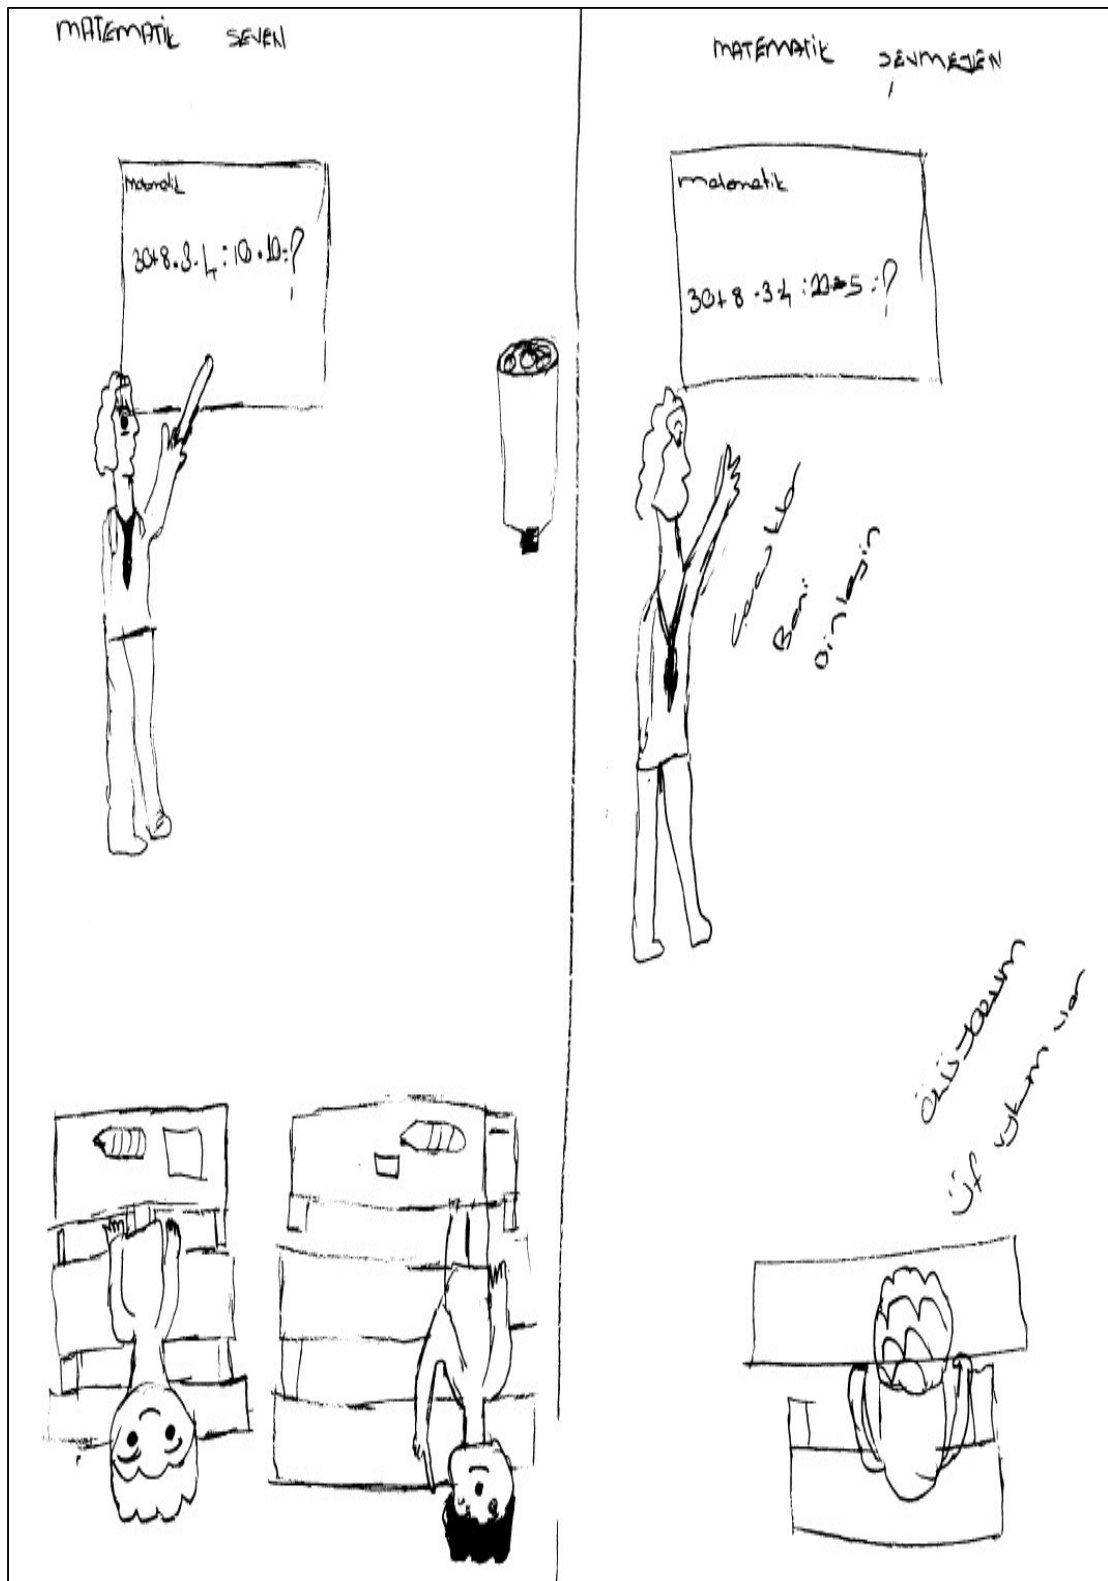 MATEMATİK SEVEN
matematik
30+8.3.4:10.10=?
MATEMATİK SEVMEYEN
matematik
30+8.3.4:20-5=?
Çocuklar
Beni
Dinleyin
Üf uykum var